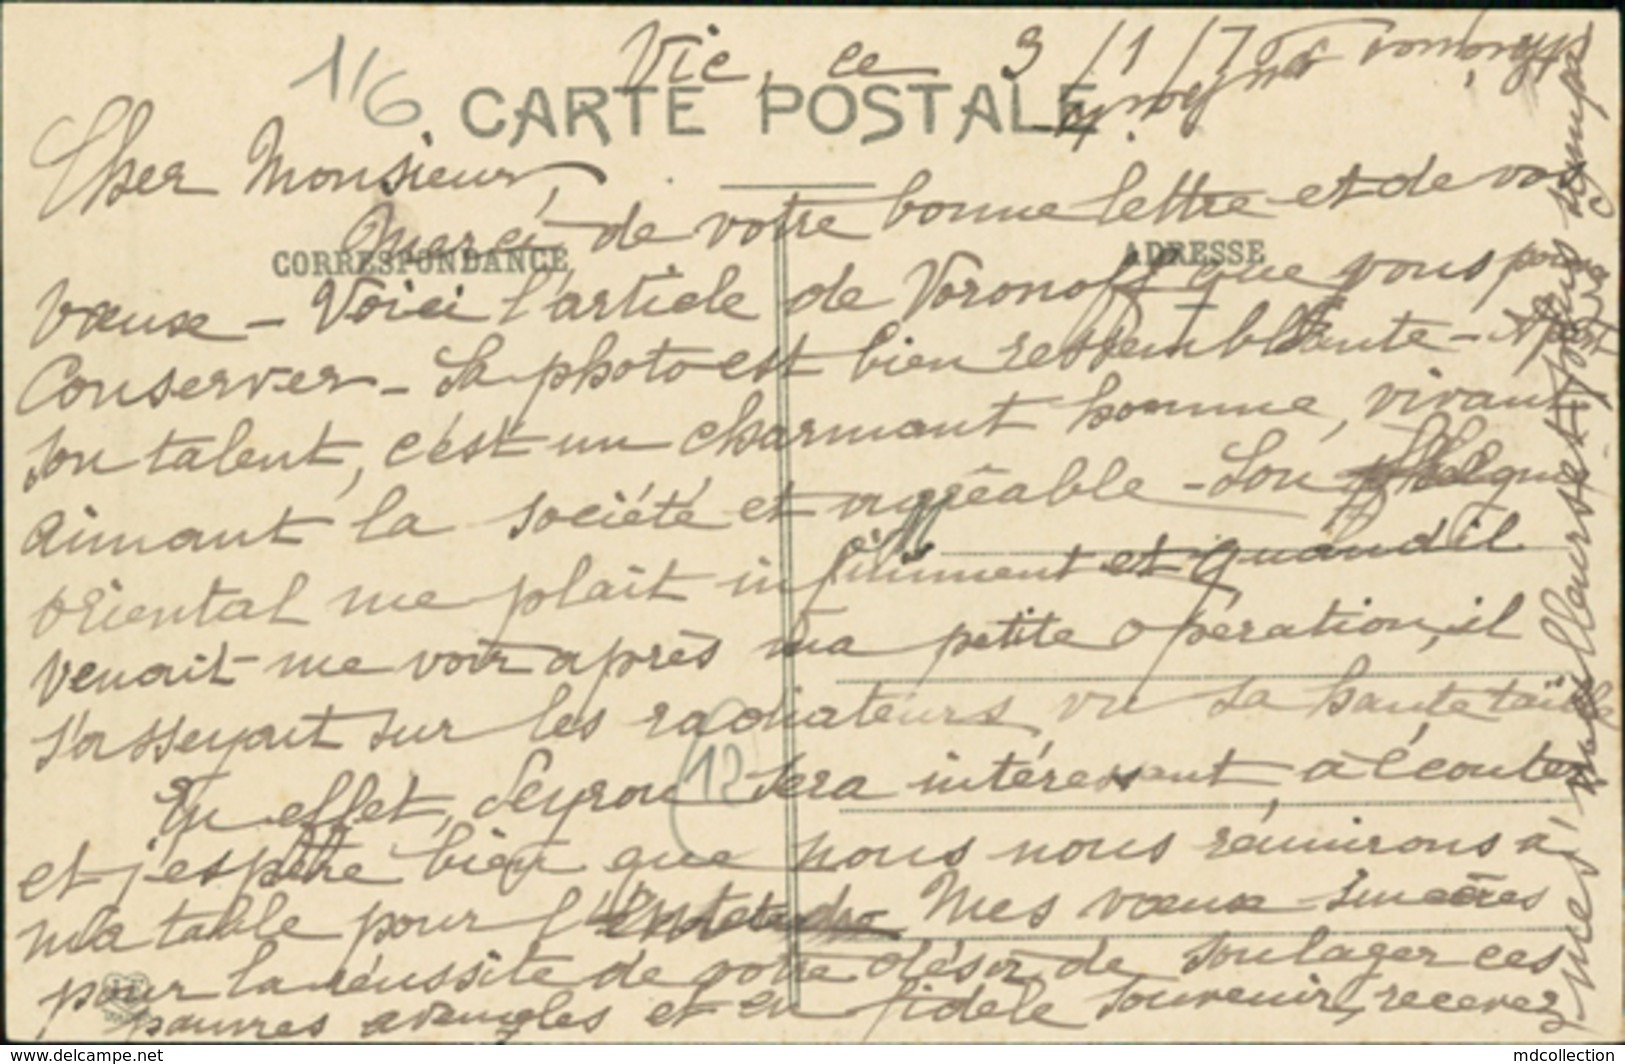 1/6
Vic, ce 3/1/7
CARTE POSTALE
Cher Monsieur,
CORRESPONDANCE
ADRESSE
Merci de votre bonne lettre et de vos
vœux - Voici l'article de Voronoff que vous pouvez
conserver - Sa photo est bien ressemblante - A part
son talent, c'est un charmant homme, vivant,
aimant la société et agréable - Son
oriental me plait infiniment et quand il
venait me voir après ma petite opération, il
s'asseyait sur les radiateurs vu sa haute taille
12
En effet, Seyrou sera intéressant à écouter
et j'espère bien que nous nous réunirons à
ma table pour l'entendre Mes vœux sincères
pour la réussite de votre désir de soulager ces
pauvres aveugles et en fidèle souvenir, recevez
mes meilleurs et
www.delcampe.net
mdcollection